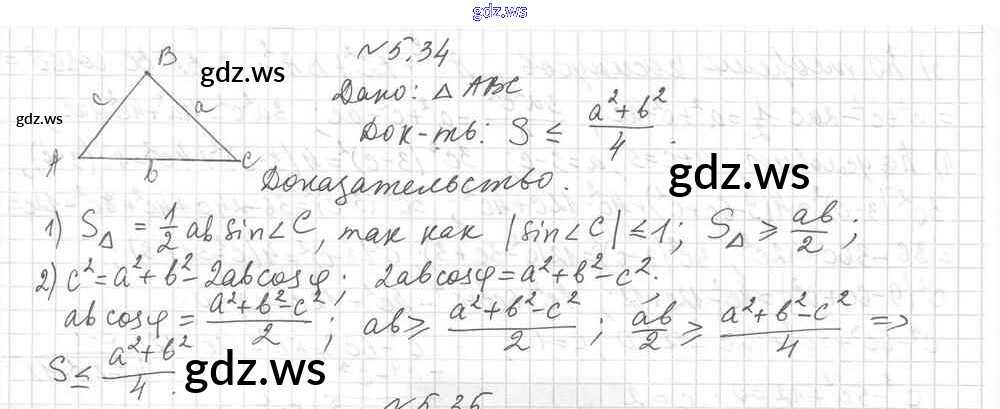 gdz.ws
№5.34
B
gdz.ws
c
a
gdz.ws
Дано: △ ABC
Док-ть: S ≤ (a²+b²)/4.
A
b
C
gdz.ws
Доказательство.
1) S△ = 1/2 ab sin∠C, так как |sin∠C| ≤ 1; S△ ≥ ab/2;
2) c² = a² + b² - 2abcosφ; 2abcosφ = a² + b² - c²;
abcosφ = (a²+b²-c²)/2; ab ≥ (a²+b²-c²)/2; ab/2 ≥ (a²+b²-c²)/4 =>
S ≤ (a²+b²)/4.
gdz.ws
№5.35